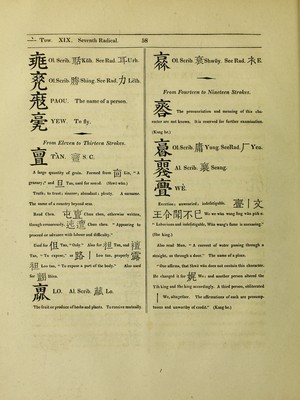 Tow. XIX. Seventh Radical. 58
Ol. Scrib. 話 Kïih. See Rad. 耳 Urh.
Ol. Scrib. 勝 Shing. See Rad. 力 Lïh.
PAOU. The name of a person.
YEW. To fly.
From Eleven to Thirteen Strokes.
亶 TAN. S. C.
A large quantity of grain. Formed from 㐭 Lin, "A
granary;" and 旦 Tan, used for sound. (Shwŏ wăn.)
Truth; to trust; sincere; abundant; plenty. A surname.
The name of a country beyond seas.
Read Chen. 屯亶 Chun chen, otherwise written,
though erroneously, 迍邅 Chun chen. "Appearing to
proceed or advance with labour and difficulty."
Used for 但 Tan, "Only." Also for 袒 Tan, and 襢
Tan, "To expose," as 路亶 Loo tan, properly 露
袒 Loo tan, "To expose a part of the body." Also used
for
LO. Al. Scrib. Lo.
The fruit or produce of herbs and plants. To receive mutually.
Ol. Scrib. 衰 Shwŭy. See Rad. 衣 E.
From Fourteen to Nineteen Strokes.
The pronunciation and meaning of this cha-
racter are not known. It is reserved for further examination.
(Kang he.)
Ol. Scrib. 庸 Yung. See Rad. 广 Yen.
Al. Scrib. 襄 Seang.
亹 WÈ.
Exertion; unwearied; indefatigable. 亹亹文
王令聞不已 We we wăn wang ling wăn pŭh e
"Laborious and indefatigable, Wăn wang's fame is unceasing."
(She king.)
Also read Mun, "A current of water passing through a
straight, or through a door." The name of a place.
"One affirms, that those who does not contain this character.
He changed it for 娓 We; and another person altered the
Yih king and She king accordingly. A third person, obliterated
We, altogether. The affirmations of each are presump-
tuous and unworthy of credit." (Kang he.)